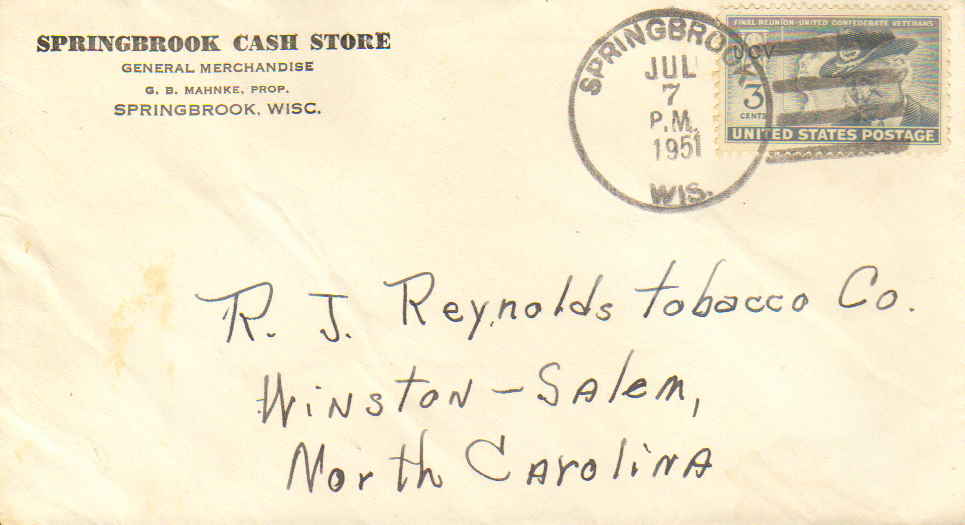 SPRINGBROOK CASH STORE
GENERAL MERCHANDISE
G. B. MAHNKE, PROP.
SPRINGBROOK, WISC.
SPRINGBROOK
JUL
7
P.M.
1951
WIS.
FINAL REUNION-UNITED CONFEDERATE VETERANS
UCV
3
CENTS
UNITED STATES POSTAGE
R. J. Reynolds tobacco Co.
Winston-Salem,
North Carolina